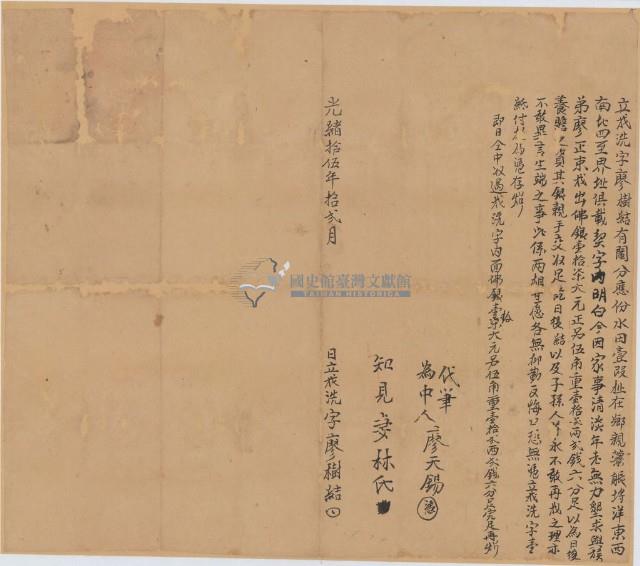 立找洗字廖樹結有鬮分應份水田壹段址在鄉親藔
洋東西
南北四至界址俱載契字內明白今因家事清淡年老無力墾求與族
弟廖正東找出佛銀壹拾柒大元正另伍角重壹拾貳兩貳錢六分足以為日後
養贍之資其銀親手交收足訖日後結以及子孫人等永不敢再找之理亦
不敢異言生端之事此係兩相甘愿各無抑勒反悔口恐無憑立找洗字壹
紙付執為憑存炤
即日仝中收過找洗字內面佛銀壹拾柒大元另伍角重壹拾貳兩貳錢六分足完足再炤
代筆
為中人廖天錫
知見妻林氏
光緒拾伍年拾貳月
日立找洗字廖樹結
國史館臺灣文獻館
TAIWAN HISTORICA